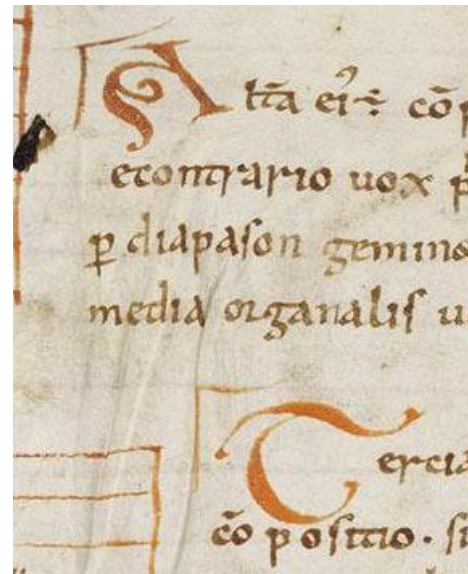 Alt̄a ei᾽ ÷ cō
econtrario uox
ꝑ diapaſon gemina
media organaliſ u
Tercia
cōpoſitio. ſi